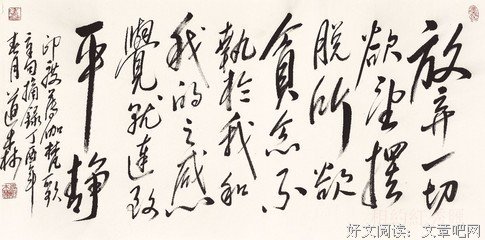 放弃一切
欲望摆
脱所欲
贪念不
執於我和
我的之感
覺就達致
平静
印度薄伽梵歌
章句摘録丁酉年
春月道森
好文阅读：文章吧网